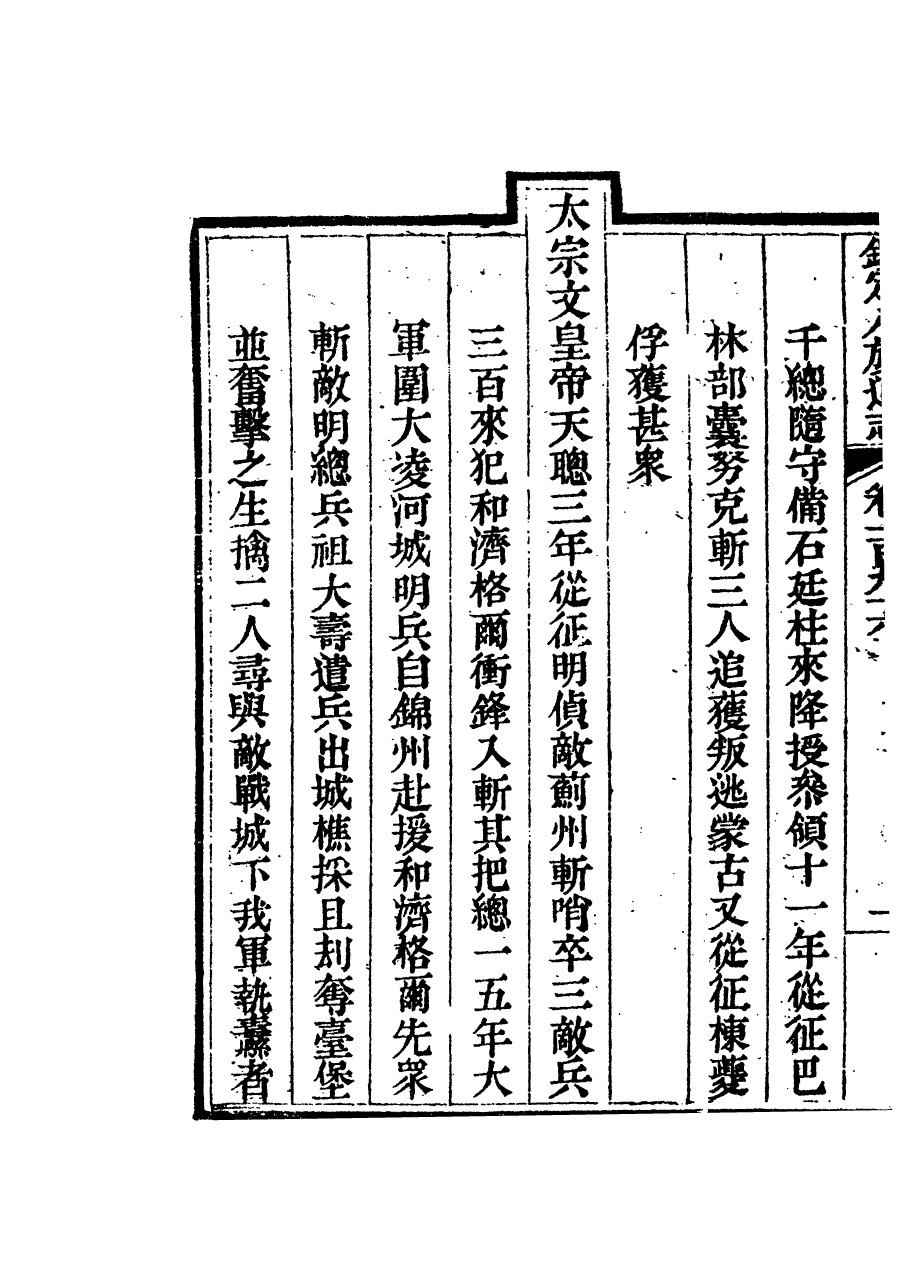 欽定八旗通志 卷一百九十六 二
千總隨守備石廷柱來降授叅領十一年從征巴
林部囊努克斬三人追獲叛逃蒙古又從征棟夔
俘獲甚衆
太宗文皇帝天聰三年從征明偵敵薊州斬哨卒三敵兵
三百來犯和濟格爾衝鋒入斬其把總一五年大
軍圍大凌河城明兵自錦州赴援和濟格爾先衆
斬敵明總兵祖大壽遣兵出城樵採且刦奪臺堡
並奮擊之生擒二人尋與敵戰城下我軍執纛者